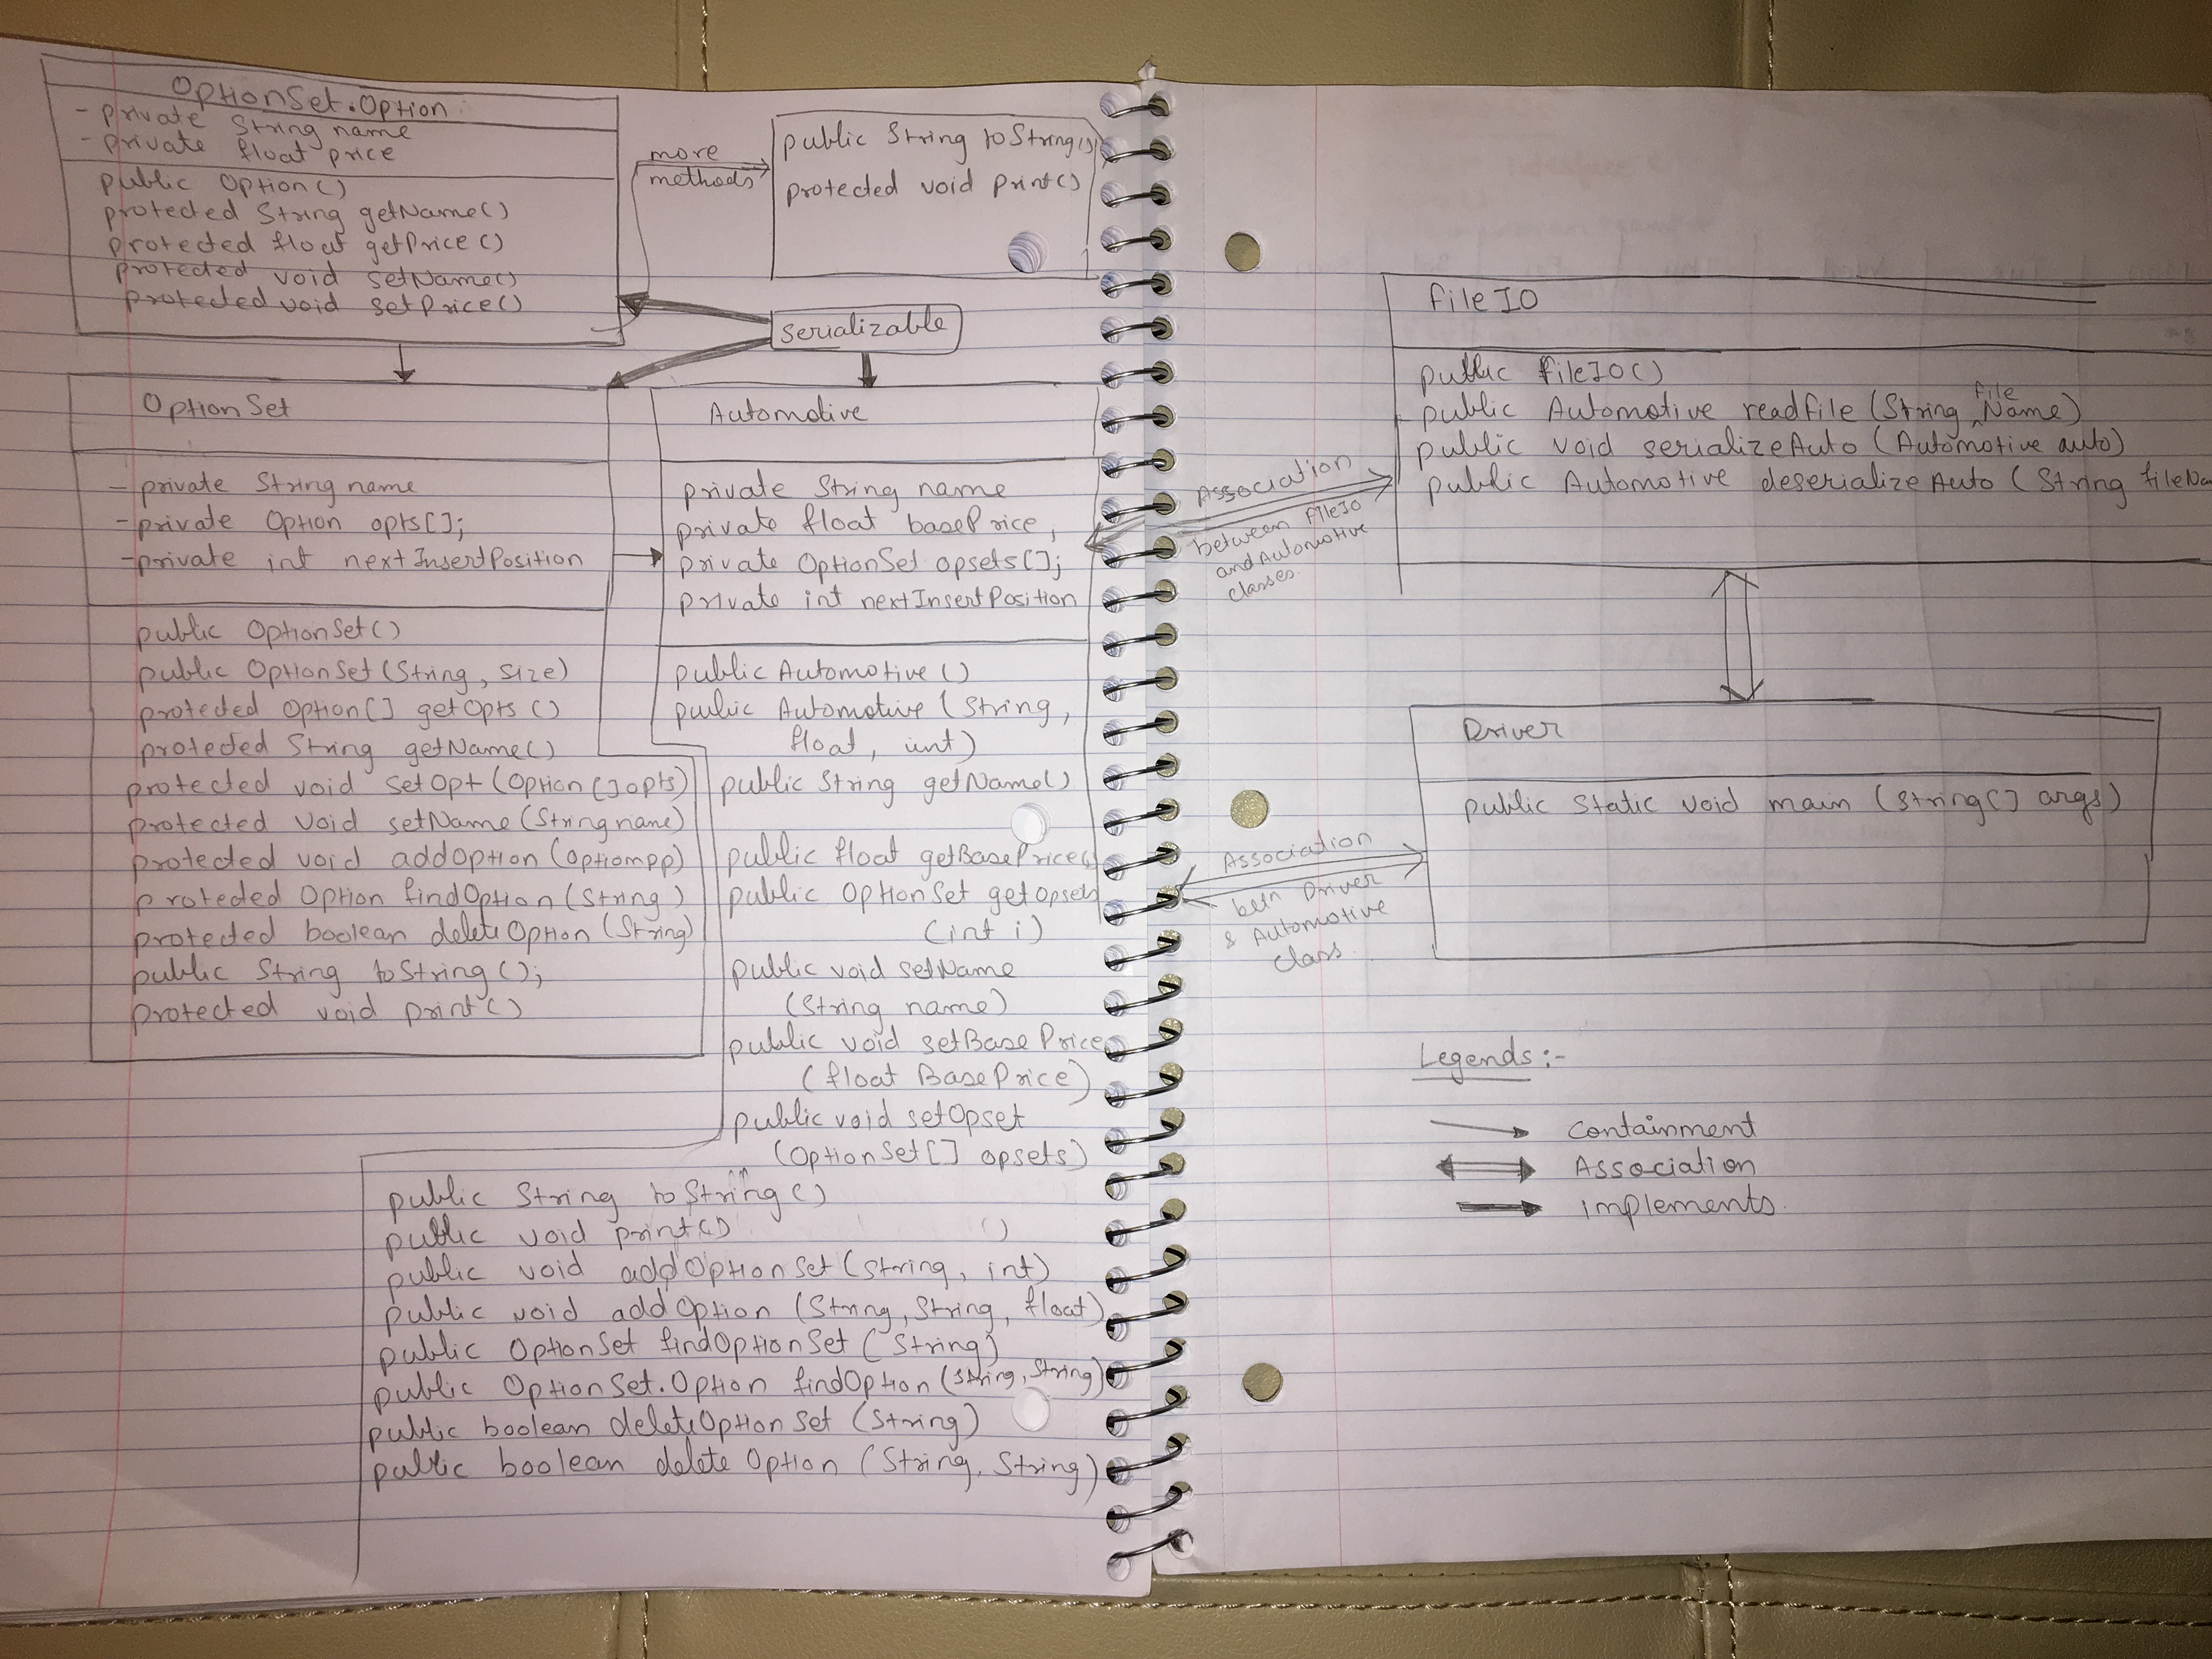 OptionSet.Option
- private String name
- private float price
public Option()
protected String getName()
protected float getPrice()
protected void setName()
protected void setPrice()
more
methods
public String toString()
protected void print()
Serializable
OptionSet
- private String name
- private Option opts[];
- private int nextInsertPosition
public OptionSet()
public OptionSet(String, size)
protected Option[] getOpts()
protected String getName()
protected void setOpt(Option[] opts)
protected void setName(String name)
protected void addOption(
protected Option findOption(String)
protected boolean deleteOption(String)
public String toString();
protected void print()
Automotive
private String name
private float basePrice,
private OptionSet opsets[];
private int nextInsertPosition
public Automotive()
public Automotive (String,
float, int)
public String getName()
public float getBasePrice()
public OptionSet getOpsets
(int i)
public void setName
(String name)
public void setBasePrice
(float BasePrice)
public void setOpset
(OptionSet[] opsets)
public String toString()
public void print()
()
public void addOptionSet(String, int)
public void addOption (String, String, float)
public OptionSet findOptionSet (String)
public OptionSet.Option findOption (String, String)
public boolean deleteOptionSet (String)
public boolean deleteOption (String, String)
Association
between FileIO
and Automotive
classes.
FileIO
public fileIO()
public Automotive readfile (String fileName)
public void serializeAuto (Automotive auto)
public Automotive deserializeAuto (String fileNa
Driver
public static void main (String[] args)
Association
betn Driver
& Automotive
class.
Legends :-
Containment
Association
implements.